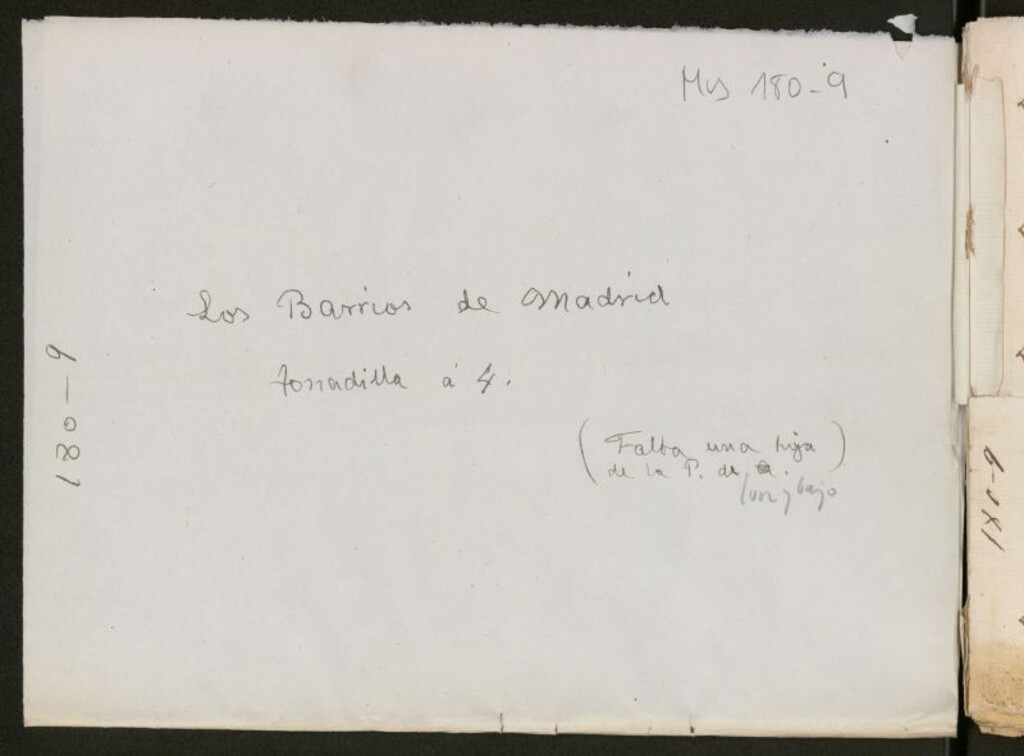 Mus 180-9
Los Barrios de Madrid
tonadilla á 4.
(Falta una hija)
de la P. de a.
voz y bajo
180-9
180-9